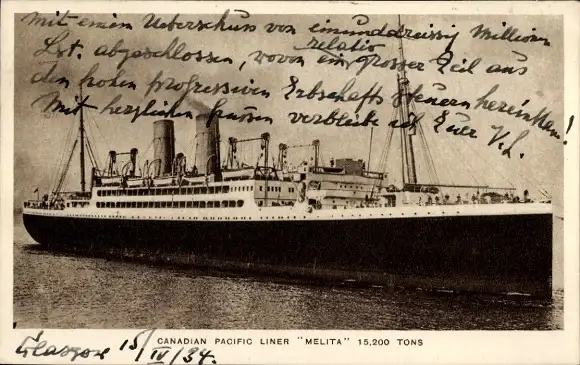 Mit einem Ueberschuss von einunddreissig Millionen
Lst. abgeschlossen, wovon ein relativ grosser Teil aus
den hohen progressiven Erbschaftssteuern hereinkam!
Mit herzlichen Grüssen verbleibe ich Euer
CANADIAN PACIFIC LINER "MELITA" 15,200 TONS
Glasgow 15/IV/34.